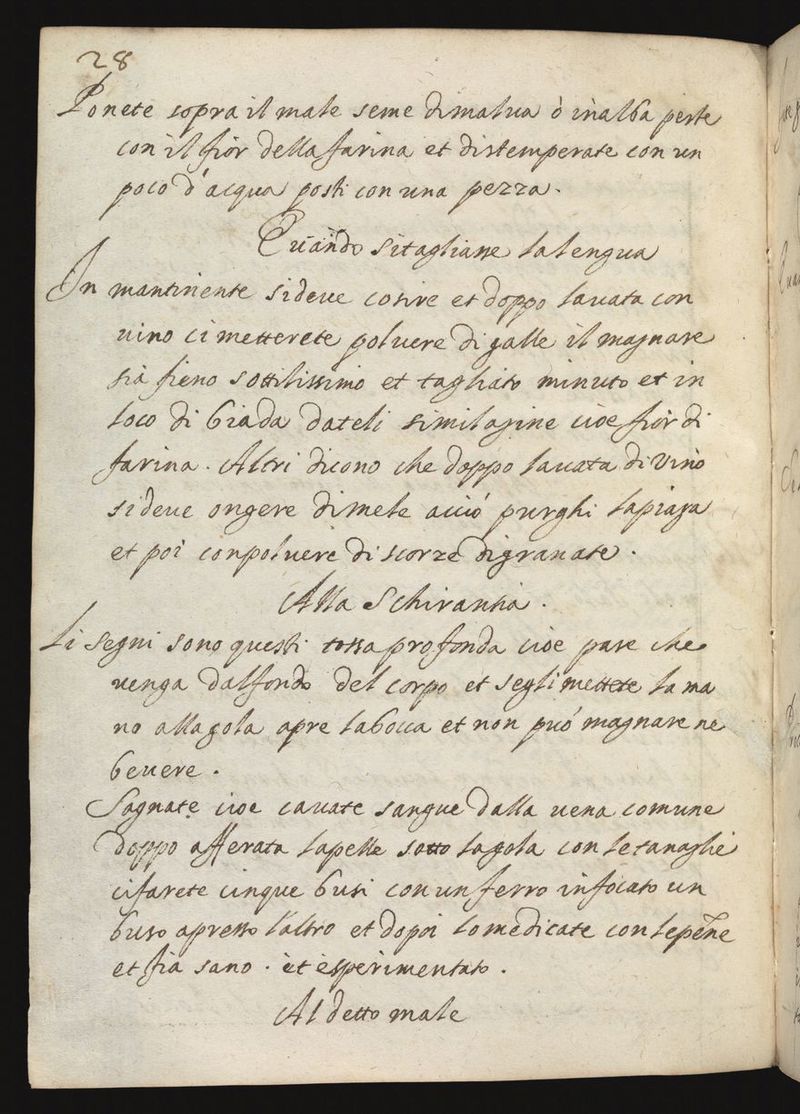 28
Ponete sopra il male seme di malua ò inalba peste
con il fior della farina et distemperate con un
poco d'acqua posti con una pezza.
Quando si tagliasse la lengua
In mantinente si deue cosire et doppo lauata con
uino ci metterete poluere di galle il magnare
sia fieno sottilissimo et tagliato minuto et in
loco di biada dateli similagine cioe fior di
farina. Altri dicono che doppo lauata di vino
si deue ongere di mele acció purghi la piaga
et poi con poluere di scorze di granate.
Alla Schirantia.
Li segni sono questi tossa profonda cioe pare che
uenga dal fondo del corpo et se gli mettete la ma
no alla gola apre la bocca et non può magnare ne
beuere.
Sagnate cioe cauate sangue dalla uena comune
doppo afferata la pelle sotto la gola con le tanaglie
ci farete cinque busi con un ferro infocato un
buso apresso l'altro et dopoi lo medicate con le pene
et sia sano. et è esperimentato.
Al detto male